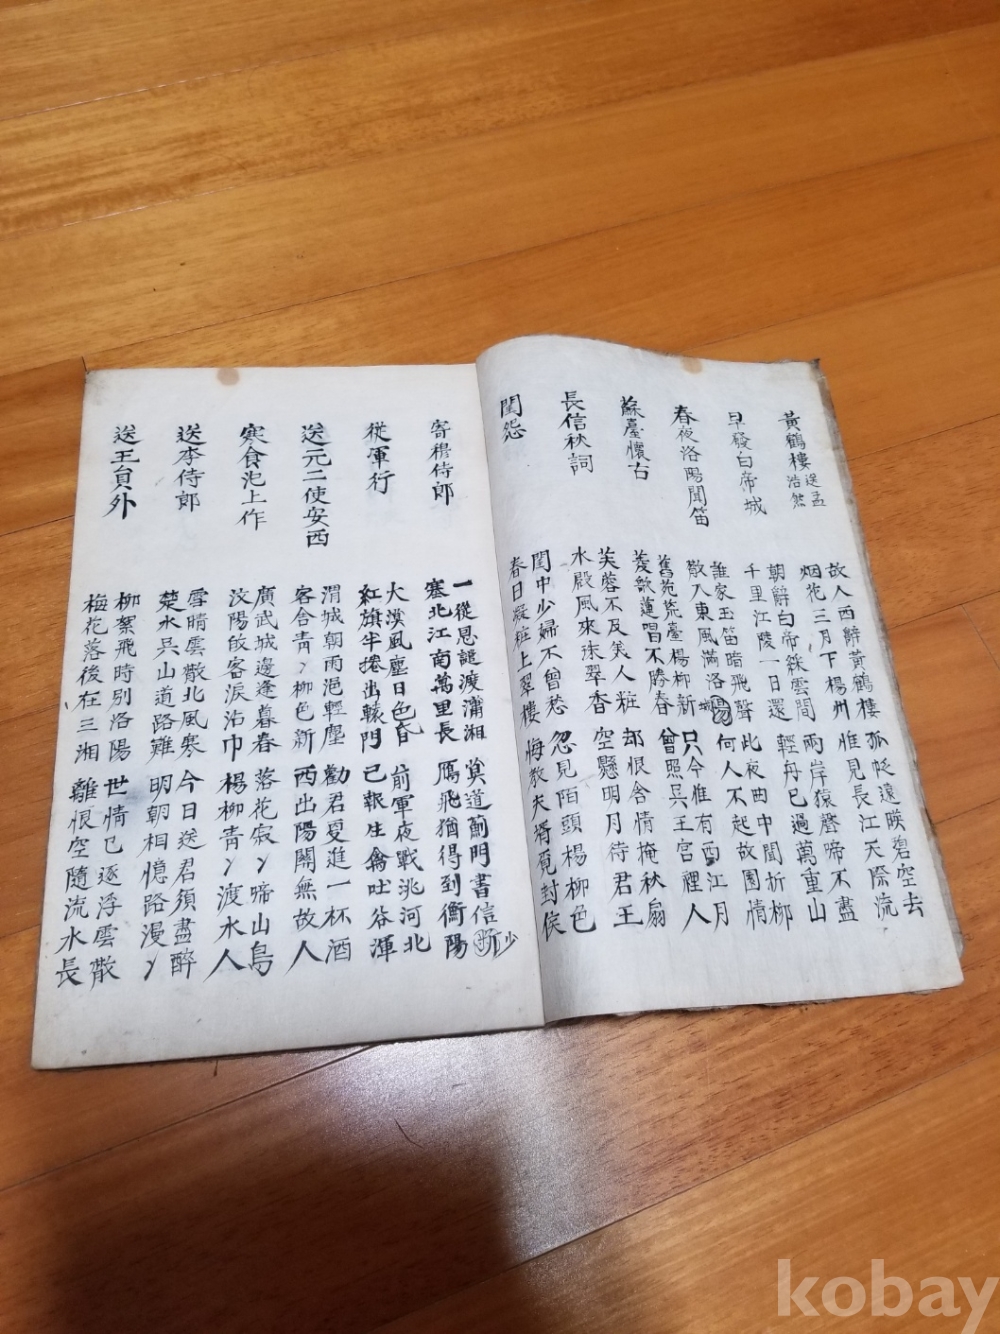 黃鶴樓送孟浩然
故人西辭黃鶴樓
烟花三月下楊州
孤帆遠映碧空去
惟見長江天際流
早發白帝城
朝辭白帝綵雲間
千里江陵一日還
兩岸猿聲啼不盡
輕舟已過萬重山
春夜洛陽聞笛
誰家玉笛暗飛聲
散入東風滿洛城
此夜曲中聞折柳
何人不起故園情
蘇臺懷古
舊苑荒臺楊柳新
菱歌蓮唱不勝春
只今惟有西江月
曾照吳王宮裡人
長信秋詞
芙蓉不及美人粧
水殿風來珠翠香
却恨含情掩秋扇
空懸明月待君王
閨怨
閨中少婦不曾愁
春日凝粧上翠樓
忽見陌頭楊柳色
悔教夫壻覓封侯
寄穆侍郎
一從恩譴渡瀟湘
塞北江南萬里長
莫道薊門書信少
鴈飛猶得到衡陽
從軍行
大漠風塵日色昏
紅旗半捲出轅門
前軍夜戰洮河北
已報生禽吐谷渾
送元二使安西
渭城朝雨浥輕塵
客舍青〻柳色新
勸君更進一杯酒
西出陽關無故人
寒食汜上作
廣武城邊逢暮春
汶陽歸客淚沾巾
落花寂〻啼山鳥
楊柳青〻渡水人
送李侍郎
雪晴雲散北風寒
楚水吳山道路難
今日送君須盡醉
明朝相憶路漫〻
送王員外
柳絮飛時別洛陽
梅花落後在三湘
世情已逐浮雲散
離恨空隨流水長
kobay